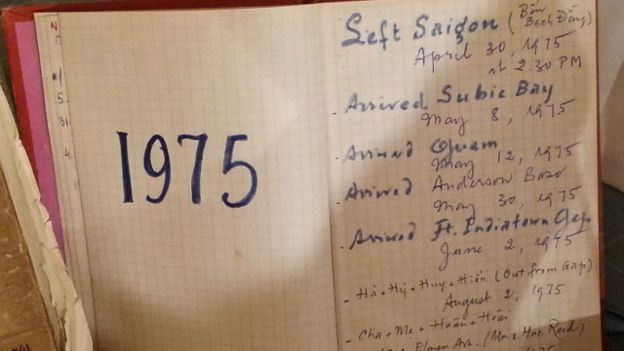 1975
Left Saigon (Bến
Bạch Đằng)
April 30, 1975
at 2.30 PM
- Arrived Subic Bay
May 8, 1975
- Arrived Guam
May 12, 1975
- Arrived Anderson Base
May 30, 1975
- Arrived Ft. Indiatown Gap
June 2, 1975
- Hà + Hý + Huy + Hiền (Out from Gap)
August 2, 1975
- Cha + Me + Hoán + Hoài
Elmer Ave. (Mr & Mrs. Reid)